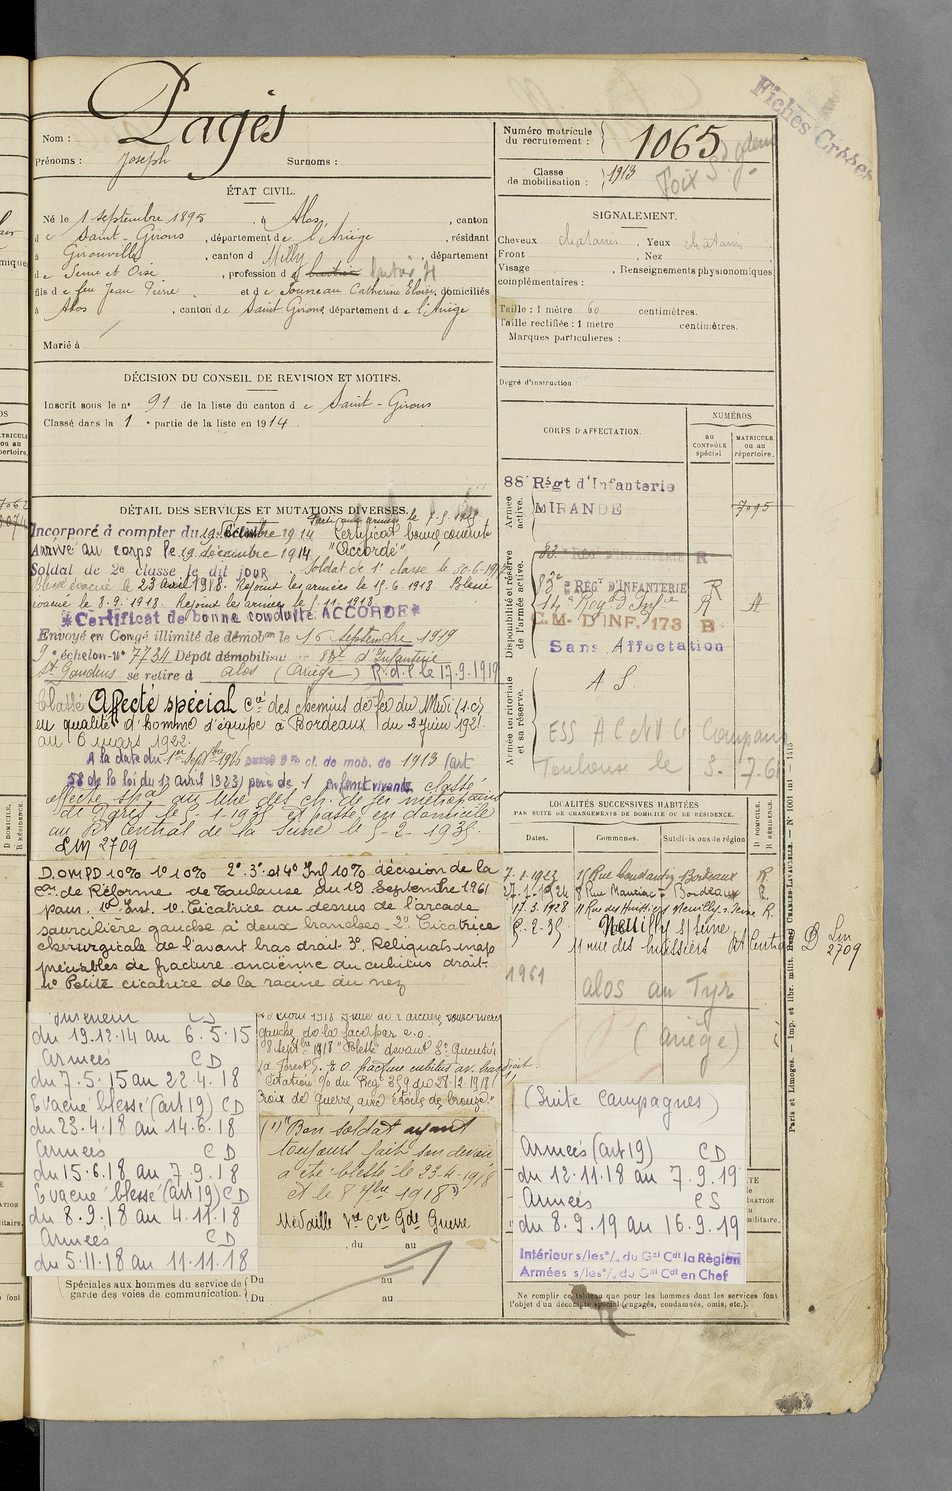 Fiches Grises
Nom : Pagès
Prénoms : Joseph Surnoms :
Numéro matricule du recrutement : 1065
Classe de mobilisation : 1913
Foix
ÉTAT CIVIL.
Né le 1 septembre 1895 , à Alos , canton
de Saint-Girons , département de l'Ariège , résidant
à Gironville , canton d Milly , département
de Seine et Oise , profession d
fils de feu Jean Pierre et de Jouneau Catherine Eloïse, domiciliés
à Alos , canton de Saint Girons, département de l'Ariège
Marié à
SIGNALEMENT.
Cheveux chatains . Yeux chatains
Front Nez
Visage , Renseignements physionomiques
complémentaires :
Taille : 1 mètre 60 centimètres.
Taille rectifiée : 1 mètre centimètres.
Marques particulières :
Degré d'instruction
DÉCISION DU CONSEIL DE REVISION ET MOTIFS.
Inscrit sous le n° 91 de la liste du canton de Saint-Girons
Classé dans la 1e partie de la liste en 1914.
CORPS D'AFFECTATION.
NUMÉROS
au CONTRÔLE spécial
MATRICULE ou au répertoire.
Armée active.
88e Régt d'Infanterie
MIRANDE
7095
Disponibilité et réserve de l'armée active.
83e REGT D'INFANTERIE R
83e REGT D'INFANTERIE R
14e Regt d'Infie R A
C.M. D'INF. 173 B
Sans Affectation
Armée territoriale et sa réserve.
A. S.
Toulouse le
DÉTAIL DES SERVICES ET MUTATIONS DIVERSES.
Parti aux armées le 7.5.1915
Incorporé à compter du 19 décembre 1914 Certificat bonne conduite
Arrivé au corps le 19 décembre 1914. "Accordé"
Soldat de 2e classe le dit jour. Soldat de 1e classe le
Blessé évacué le 23 avril 1918. Rejoint les armées le 15.6.1918. Blessé
évacué le 8.9.1918. Rejoint les armées le 5.11.1918
*Certificat de bonne conduite ACCORDÉ*
Envoyé en Congé illimité de démobon le 16 septembre 1919
9e échelon-No 7734 Dépôt démobilisateur 83e d'Infanterie
St Gaudens se retire à Alos (Ariège) R.d.l. le 17.9.1919
Classé Affecté spécial Cie des chemins de fer du Midi
en qualité d'homme d'équipe à Bordeaux du 3 Juin 1921
au 6 mars 1922.
A la date du 1er Septbre 1926 passé à la cl. de mob. de 1913 (art
58 de la loi du 1er avril 1923) père de 1 enfant vivant classé
affecté spal au titre des ch. de fer métropolitains
de Paris le 5-1-1935 et passé en domicile
au Rt Central de la Seine le 5-2-1935.
LM 2709
D.OMPD 10% 1° 10% 2°.3° et 4° Inf 10% décision de la
Con de Réforme de Toulouse du 19 Septembre 1961
pour. 1° Inst. 1°. Cicatrice au dessus de l'arcade
sourcilière gauche à deux branches. 2°. Cicatrice
chirurgicale de l'avant bras droit. 3°. Reliquats inap
préciables de fracture ancienne du cubitus droit.
4° Petite cicatrice de la racine du nez
LOCALITÉS SUCCESSIVES HABITÉES
PAR SUITE DE CHANGEMENTS DE DOMICILE OU DE RÉSIDENCE.
Dates. Communes. Subdivisions de région
D. DOMICILE. R. RÉSIDENCE.
7-1-1923 Rue Constantin Bordeaux R
27-1-1924 8 Rue Mauriac Bordeaux R
17.3.1928 11 Rue des Huissiers Neuilly s. Seine R.
5-2-35 Neuilly s/ Seine
11 rue des huissiers Rt Central D LM 2709
1961 Alos
(Ariège)
Intérieur CS
du 19.12.14 au 6.5.15
Armées CD
du 7.5.15 au 22.4.18
Evacué blessé (art 19) CD
du 23.4.18 au 14.6.18
Armées CD
du 15.6.18 au 7.9.18
Evacué blessé (art 19) CD
du 8.9.18 au 4.11.18
Armées CD
du 5.11.18 au 11.11.18
gauche, de la face par e.o.
8 septbre 1918 "Blessé" devant St Quentin
E.O. fracture cubitus av. bras droit.
Citation o/ du Regt 359 du 28.12.1918 (1)
Croix de guerre avec étoile de bronze."
(1) "Bon soldat ayant
toujours fait son devoir
a été blessé le 23.4.1918
et le 8 7bre 1918"
Médaille Vre Cve Gde Guerre
, du au
Spéciales aux hommes du service de garde des voies de communication.
Du au
Du au
(Suite Campagnes)
Armées (art 19) CD
du 12.11.18 au 7.9.19
Armées CS
du 8.9.19 au 16.9.19
Intérieur s/les o/. du Gal Cdt la Région
Armées s/les o/. du Gal Cdt en Chef
Ne remplir ce tableau que pour les hommes dont les services font
l'objet d'un décompte spécial (engagés, condamnés, omis, etc.).
Paris et Limoges. — Imp. et libr. milit. Henri CHARLES-LAVAUZELLE. — N° 1001 int — 1415